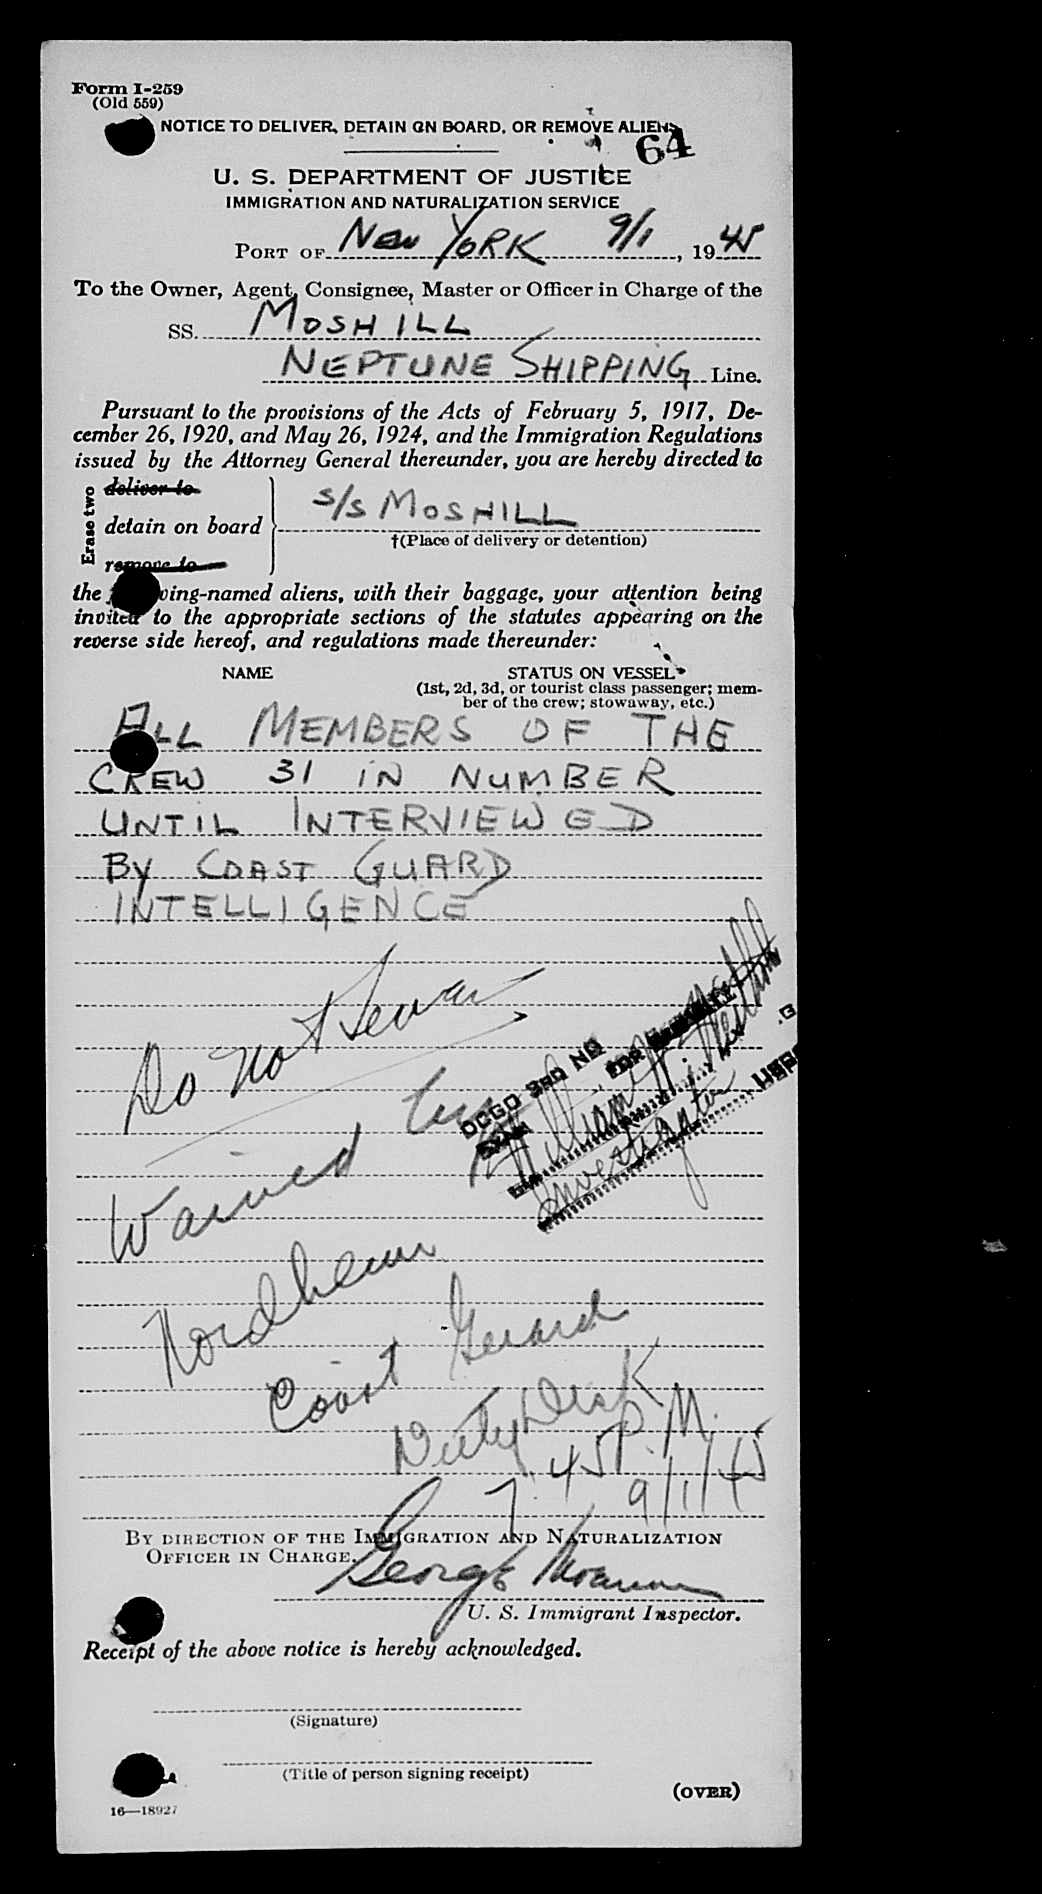 Form I-259
(Old 559)
NOTICE TO DELIVER, DETAIN ON BOARD, OR REMOVE ALIENS
64
U. S. DEPARTMENT OF JUSTICE
IMMIGRATION AND NATURALIZATION SERVICE
PORT OF NEW YORK 9/1, 1945
To the Owner, Agent, Consignee, Master or Officer in Charge of the
SS. MOSHILL
NEPTUNE SHIPPING Line.
Pursuant to the provisions of the Acts of February 5, 1917, De-
cember 26, 1920, and May 26, 1924, and the Immigration Regulations
issued by the Attorney General thereunder, you are hereby directed to
Erase two
deliver to
detain on board
remove to
S/S MOSHILL
†(Place of delivery or detention)
the following-named aliens, with their baggage, your attention being
invited to the appropriate sections of the statutes appearing on the
reverse side hereof, and regulations made thereunder:
NAME STATUS ON VESSEL
(1st, 2d, 3d, or tourist class passenger; mem-
ber of the crew; stowaway, etc.)
ALL MEMBERS OF THE
CREW 31 IN NUMBER
UNTIL INTERVIEWED
BY COAST GUARD
INTELLIGENCE
Do not
DCGO 3RD ND
FOR
USCG
Investigator
Waived by
Nordheim
Coast Guard
Duty Desk
7:45 P.M.
9/1/45
BY DIRECTION OF THE IMMIGRATION AND NATURALIZATION
OFFICER IN CHARGE.
George
U. S. Immigrant Inspector.
Receipt of the above notice is hereby acknowledged.
(Signature)
(Title of person signing receipt)
(OVER)
16—18927